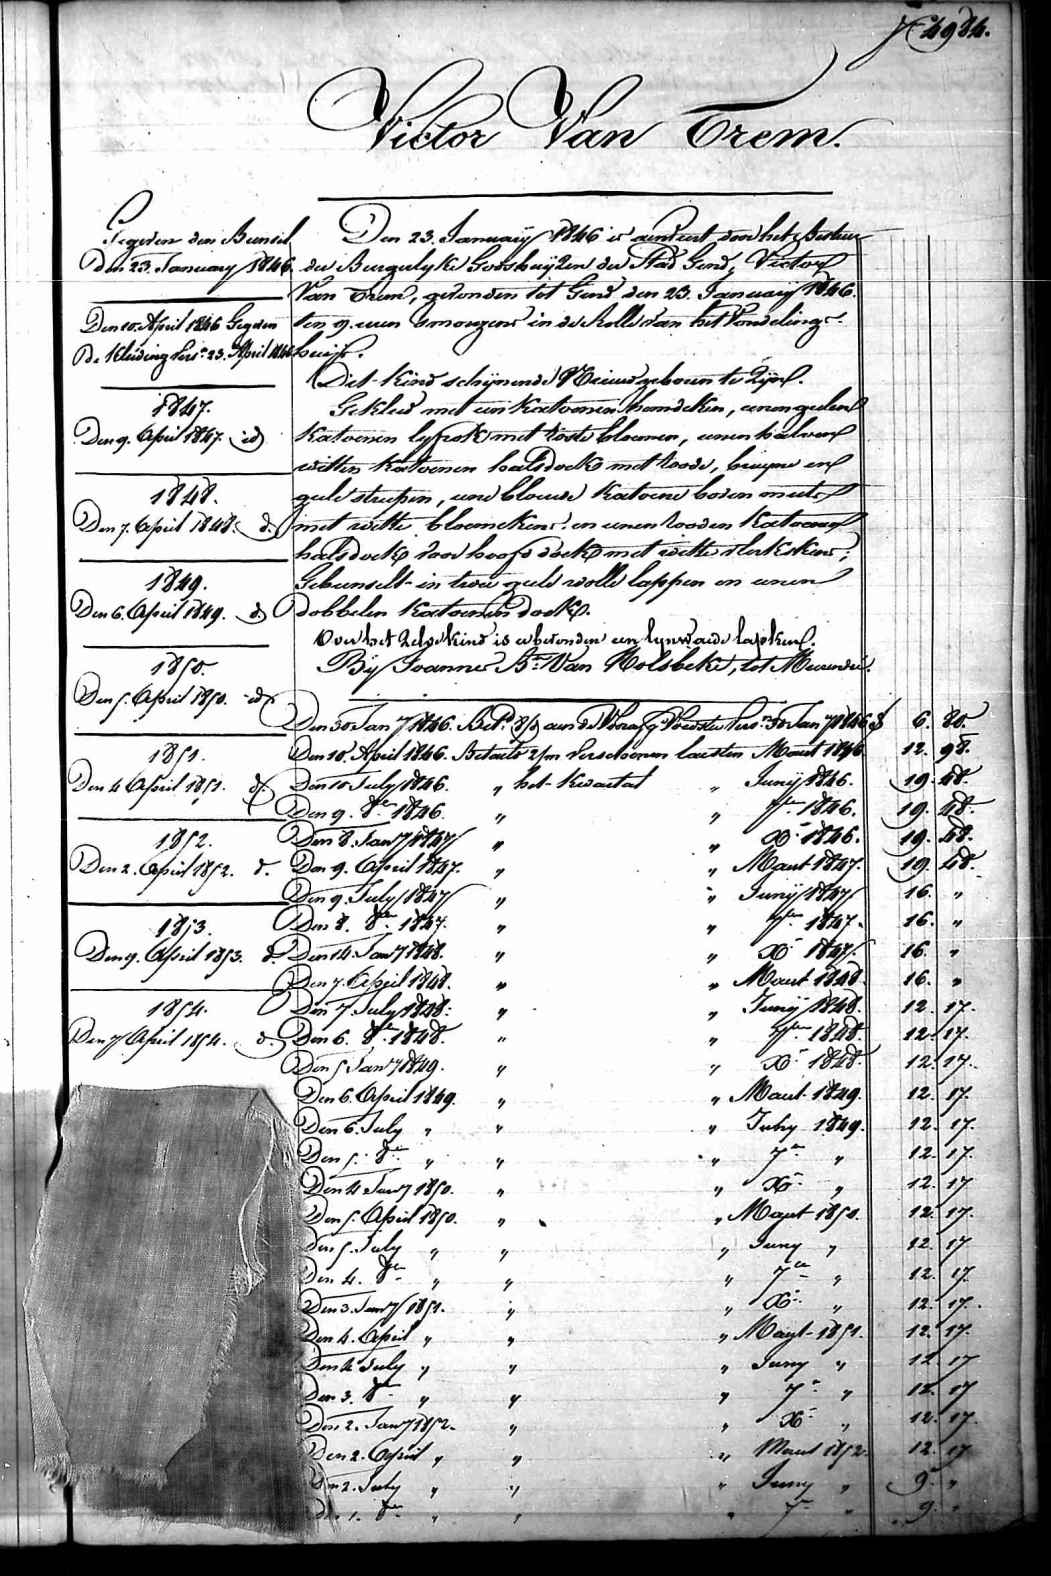 Nº 4984.
Victor Van Trem.
Gegeven den Bunsel
Den 23. January 1846.
Den 10. April 1846 Gegeven
De Kleeding vers. 23. April 1846
1847.
Den 9. April 1847. id
1848.
Den 7. April 1848. d.
1849.
Den 6. April 1849. d.
1850.
Den 5. April 1850. id
1851.
Den 4 April 1851. d.
1852.
Den 2. April 1852. d.
1853.
Den 9. April 1853. d.
1854.
Den 7 April 1854. d.
Den 23. Januarij 1846 is aenveert door het Bestuur
der Burgelyke Godshuijzen der Stad Gend, Victor
Van Trem, gevonden tot Gend den 23. Januarij 1846.
ten 9. uren smorgens in de Rolle van het Vondelings-
huijs.
Dit Kind schijnende Nieuwgeboren te Zijn.
Gekleed met een Katoenen hemdeken, eenen geelen
Katoenen lyfrok met roode bloemen, eenen halven
witten Katoenen halsdoek met roode, bruyne en
geele streepen, eene blauwe Katoene boven muts
met witte bloemekens en eenen rooden Katoenen
halsdoek voor hoofd doek met witte vlekskens;
Gebunselt in twee geele wolle lappen en eenen
dobbelen Katoenen doek.
Over het Zelve kind is er bevonden een lynwaede lapken.
By Joannes Bte Van Holsbeke, tot Meirendre.
Den 30 Jany 1846. Bet. aen de Voorafg. Voedster vers. 30 Jany 1846 6. 80.
Den 10. April 1846. Betaelt 2/m Verschoonen laesten Maert 1846 12. 98.
Den 10 July 1846. " het Kwartael " Junij 1846. 19. 48.
Den 9. 8er 1846. " " 7er 1846. 19. 48.
Den 8. Jany 1847 " " Xr 1846. 19. 48.
Den 9. April 1847. " " Maert 1847. 19. 48.
Den 9. July 1847 " " Junij 1847 16. "
Den 8. 8er 1847. " " 7er 1847. 16. "
Den 14. Jany 1848. " " Xr 1847. 16. "
Den 7. April 1848. " " Maert 1848 16. "
Den 7 July 1848. " " Junij 1848. 12. 17.
Den 6. 8er 1848. " " 7er 1848. 12. 17.
Den 5 Jany 1849. " " Xr 1848. 12. 17.
Den 6. April 1849. " " Maert 1849. 12. 17.
Den 6. July " " " July 1849. 12. 17.
Den 5. 8er " " " 7er " 12. 17.
Den 4 Jany 1850. " " Xr " 12. 17
Den 5. April 1850. " " Maert 1850. 12. 17.
Den 5. July " " " Juny " 12. 17
Den 4. 8er " " " 7er " 12. 17.
Den 3. Jany 1851. " " Xr " 12. 17.
Den 4. April " " " Maert 1851. 12. 17.
Den 4 July " " " Juny " 12 17
Den 3. 8er " " " 7er " 12. 17
Den 2. Jany 1852. " " Xr " 12. 17.
Den 2. April " " " Maert 1852. 12. 17
Den 2. July " " " Juny " 9. "
Den 1. 8er " " " 7er " 9. "